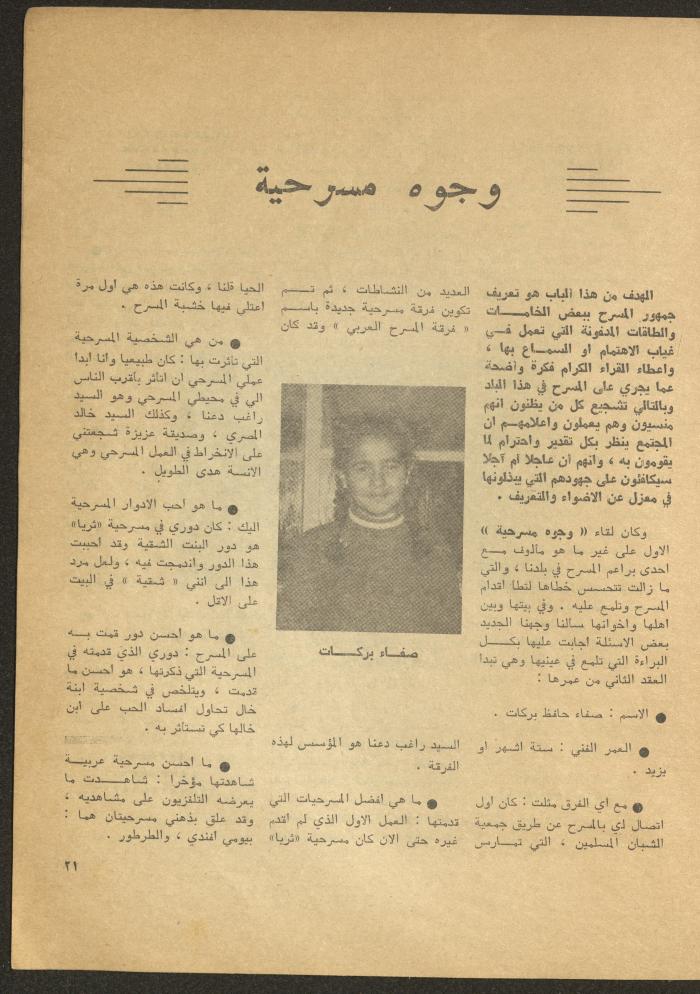 وجوه مسرحية
الهدف من هذا الباب هو تعريف
جمهور المسرح ببعض الخامـــات
والطاقات المدفونة التي تعمل فـــي
غياب الاهتمام او السمـــاع بها ،
واعطاء القراء الكرام فكرة واضحة
عما يجري على المسرح في هذا البلد
وبالتالي تشجيع كل من يظنون انهم
منسيون وهم يعملون واعلامهـــم ان
المجتمع ينظر بكل تقدير واحترام لما
يقومون به ، وانهم ان عاجلا ام آجلا
سيكافئون على جهودهم التي يبذلونها
في معزل عن الاضواء والتعريف .
وكان لقاء « وجوه مسرحية »
الاول على غير ما هو مالوف مـــع
احدى براعم المسرح في بلدنا ، والتي
ما زالت تتحسس خطاها لتطا اقدام
المسرح وتلمع عليه . وفي بيتها وبين
اهلها واخوانها سالنا وجهنا الجديد
بعض الاسئلة اجابت عليها بكـــل
البراءة التي تلمع في عينيها وهي تبدا
العقد الثاني من عمرها :
● الاسم : صفاء حافظ بركات .
● العمر الفني : ستة اشهر او
يزيد .
● مع اي الفرق مثلت : كان اول
اتصال لي بالمسرح عن طريق جمعية
الشبان المسلمين ، التي تمـــارس
العديد من النشاطات ، ثم تـــم
تكوين فرقة مسرحية جديدة باســـم
« فرقة المسرح العربي » وقد كان
صفـــاء بركـــات
السيد راغب دعنا هو المؤسس لهذه
الفرقة .
● ما هي افضل المسرحيات التي
قدمتها : العمل الاول الذي لم اقدم
غيره حتى الان كان مسرحية «ثريا»
الحيا قلنا ، وكانت هذه هي اول مرة
اعتلي فيها خشبة المسرح .
● من هي الشخصية المسرحية
التي تاثرت بها : كان طبيعيا وانا ابدا
عملي المسرحي ان اتاثر بأقرب الناس
الي في محيطي المسرحي وهو السيد
راغب دعنا ، وكذلك السيد خالد
المصري ، وصديقة عزيزة شجعتني
على الانخراط في العمل المسرحي وهي
الانسة هدى الطويل .
● ما هو احب الادوار المسرحية
اليك : كان دوري في مسرحية «ثريا»
هو دور البنت الشقية وقد احببت
هذا الدور واندمجت فيه ، ولعل مرد
هذا الى انني « شقية » في البيت
على الاقل .
● ما هو احسن دور قمت بـــه
على المسرح : دوري الذي قدمته في
المسرحية التي ذكرتها ، هو احسن ما
قدمت ، ويتلخص في شخصية ابنة
خال تحاول افساد الحب على ابن
خالها كي تستأثر به .
● ما احسن مسرحية عربيـــة
شاهدتها مؤخرا : شاهـــدت ما
يعرضه التلفزيون على مشاهديه ،
وقد علق بذهني مسرحيتان هما :
بيومي افندي ، والطرطور .
٢١